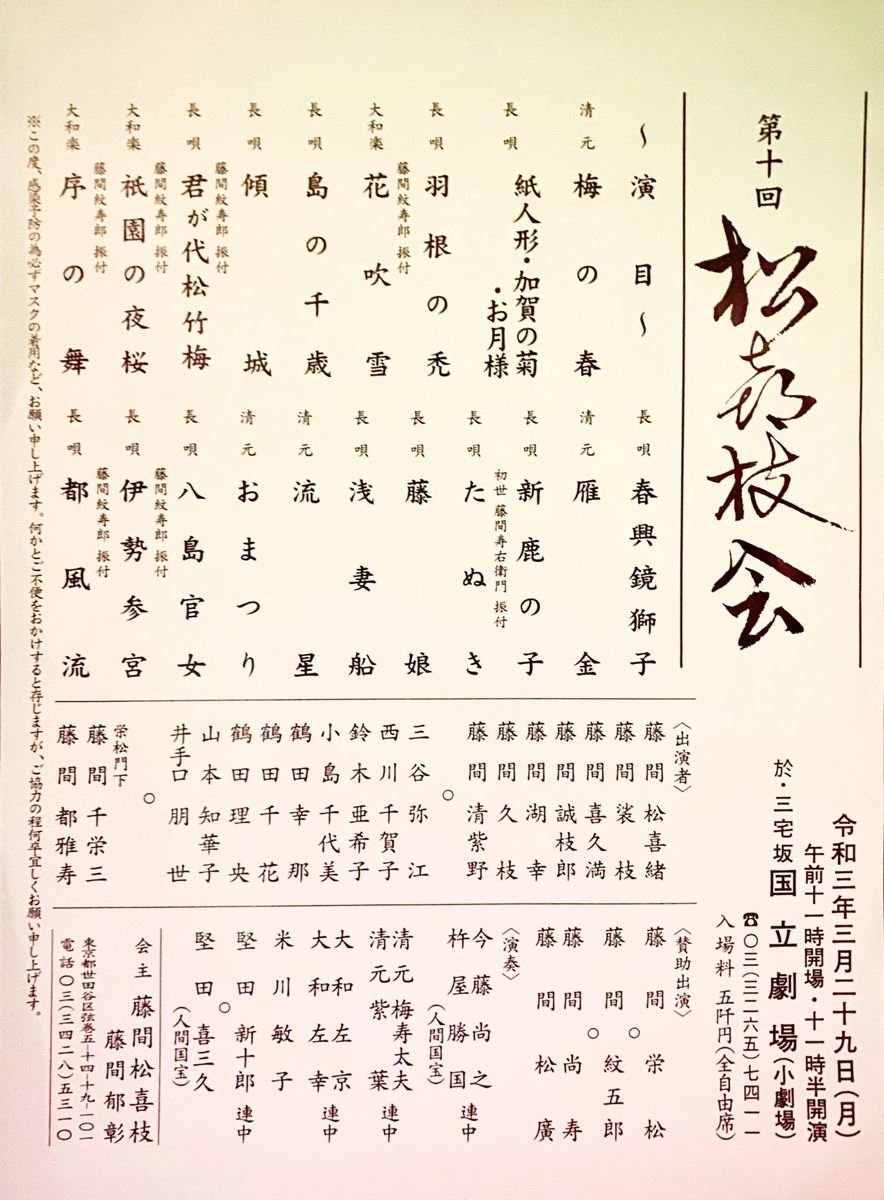 第十回
松喜枝会
令和三年三月二十九日(月)
午前十一時開場・十一時半開演
於・三宅坂 国立劇場(小劇場)
☎〇三(三二六五)七四一一
入場料 五阡円(全自由席)
～演目～
清元 梅の春
長唄 紙人形・加賀の菊
・お月様
長唄 羽根の禿
大和楽 花吹雪
藤間紋寿郎 振付
長唄 島の千歳
長唄 傾城
長唄 君が代松竹梅
藤間紋寿郎 振付
大和楽 祇園の夜桜
藤間紋寿郎 振付
大和楽 序の舞
藤間紋寿郎 振付
長唄 春興鏡獅子
清元 雁金
長唄 新鹿の子
初世 藤間寿右衛門 振付
長唄 たぬき
長唄 藤娘
長唄 浅妻船
清元 流星
清元 おまつり
長唄 八島官女
長唄 伊勢参宮
藤間紋寿郎 振付
長唄 都風流
藤間紋寿郎 振付
〈出演者〉
藤間松喜緒
藤間裟枝
藤間喜久満
藤間誠枝郎
藤間湖幸
藤間久枝
藤間清紫野
○
三谷弥江
西川千賀子
鈴木亜希子
小島千代美
鶴田幸那
鶴田千花
鶴田理央
山本知華子
井手口朋世
○
栄松門下
藤間千栄三
藤間都雅寿
〈賛助出演〉
藤間栄松
○
藤間紋五郎
○
藤間尚寿
藤間松廣
〈演奏〉
今藤尚之
杵屋勝国 連中
(人間国宝)
清元梅寿太夫
清元紫葉 連中
大和左京
大和左幸 連中
米川敏子
○
堅田新十郎 連中
堅田喜三久
(人間国宝)
会主 藤間松喜枝
藤間郁彰
東京都世田谷区弦巻五-十四-十九-一〇一
電話〇三(三四二八)五三一〇
※この度、感染予防の為必ずマスクの着用など、お願い申し上げます。何かとご不便をおかけすると存じますが、ご協力の程何卒宜しくお願い申し上げます。